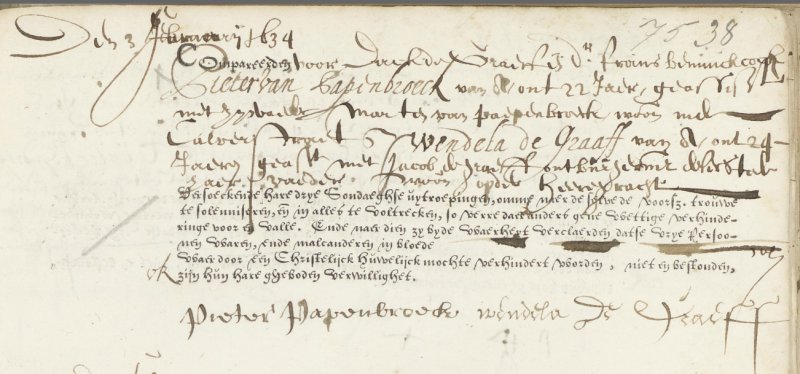 75 38
Den 3 februarij 1634
Compareerden voor Jacob de Graeff en Dr. frans heninck
Pieter van Papenbroeck van A, out 22 Jaer, geassist
met zijn vader Marten van Papenbroeck, woon inde
Calverstraet & Wendela de Graaff van A, out 24
Jaeren geasst met Jacob de Graeff
haer vader woon op de heeregracht
Versoeckende hare drye Sondaeghse uytroepingen, omme naer de selve de voorsz. trouwe
te solemniseren, en in alles te voltrecken, so verre daer anders gene wettige verhinde-
ringe voor en valle. Ende naer dien zy byde waerheyt verclaerden datse vrye Perso-
nen waren, ende malcanderen in bloede
waer door een Christelijck Huwelijck mochte verhindert worden, niet en bestonden,
ok zijn hun hare gheboden verwillighet.
Pieter Papenbroeck wendela De Graeff